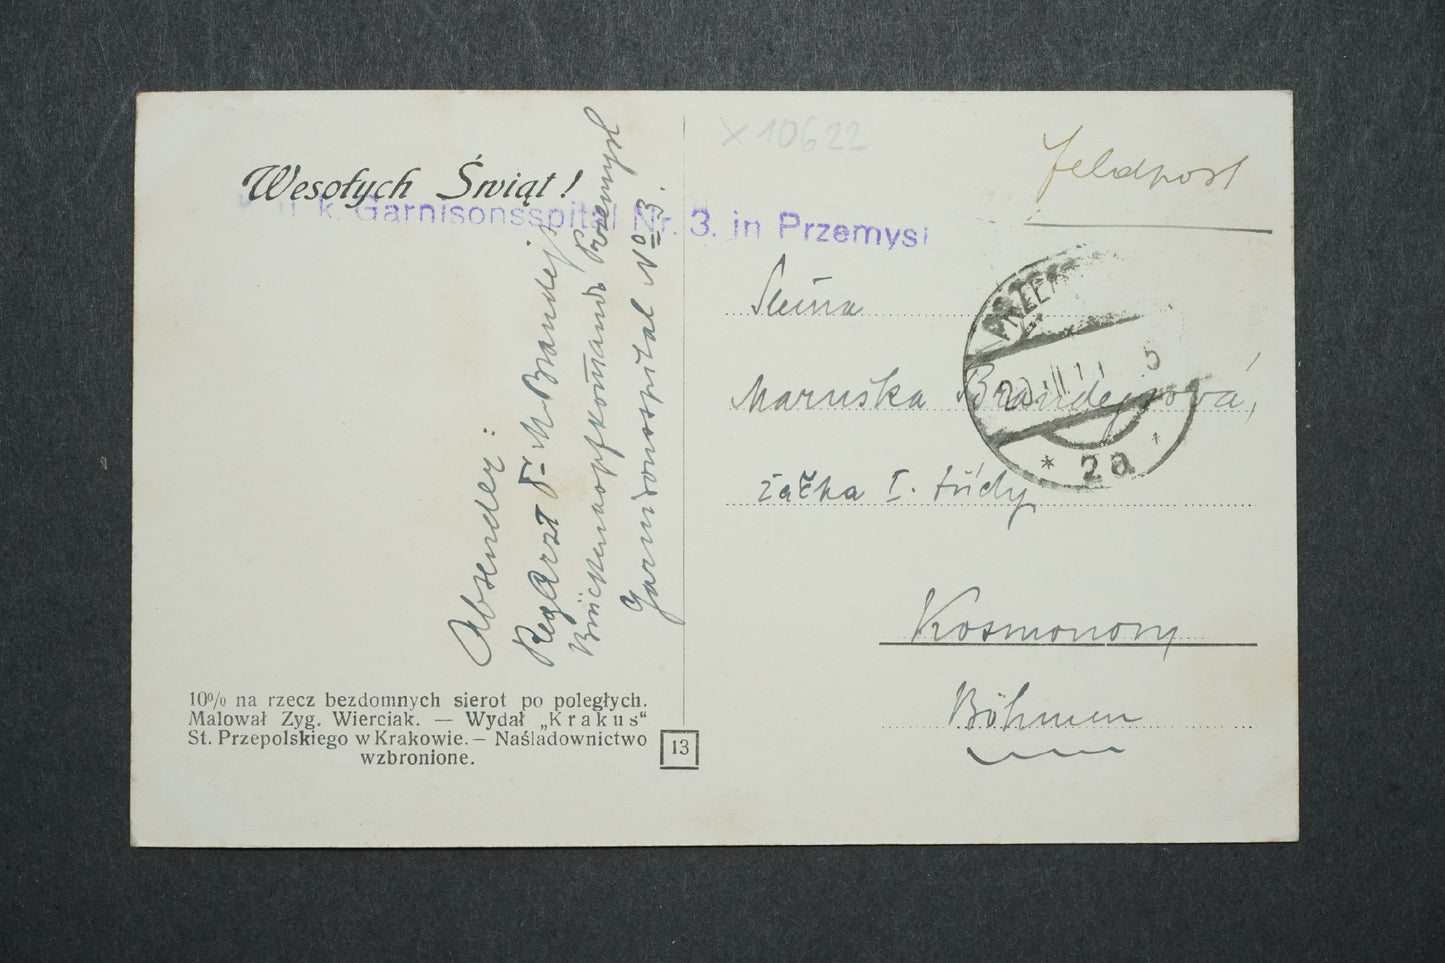 x 10622
Feldpost
Wesołych Świąt!
k. Garnisonsspital Nr. 3. in Przemysl
Absender:
RegArzt Dr M Brandejs
Brückenkopfkom̅ando Przemysl
Garnisonsspital No 3.
Slečna
Maruška Brandejsová,
žačka I. třídy
Kosmonosy
Böhmen
PRZEM
2a
10% na rzecz bezdomnych sierot po poległych.
Malował Zyg. Wierciak. — Wydał „Krakus“
St. Przepolskiego w Krakowie. — Naśladownictwo
wzbronione.
13